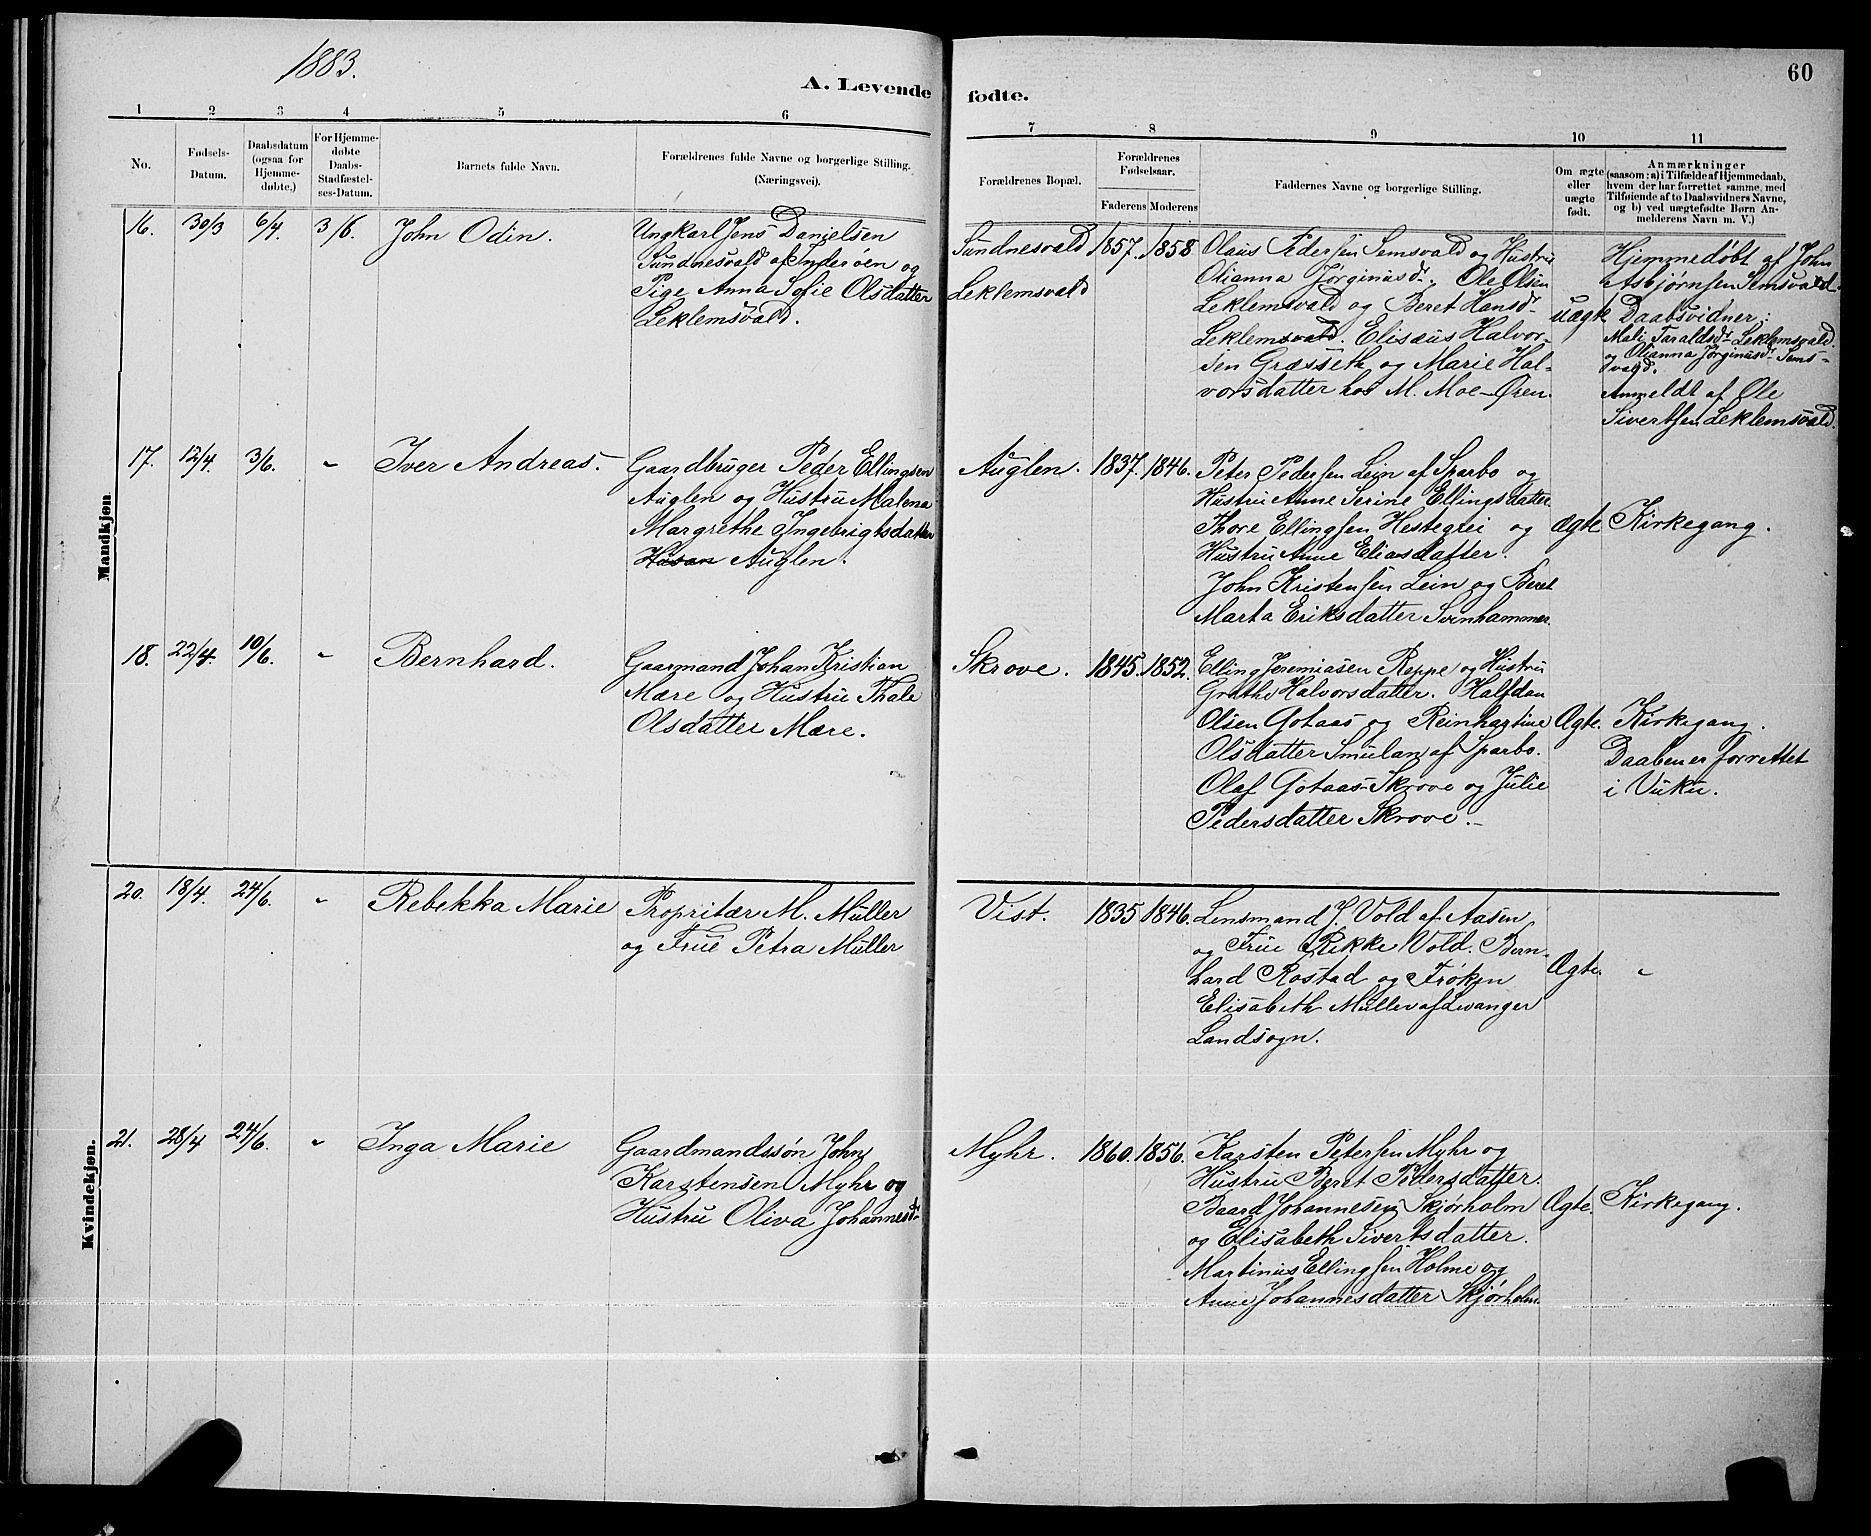 1883.
A. Levende
1 2 3 4 5 6
No.
Fødsels-
Datum.
Daabsdatum
(ogsaa for
Hjemme-
døbte.)
For Hjemme-
døbte
Daabs-
Stadfæstel-
ses-Datum.
Barnets fulde Navn.
Forældrenes fulde Navne og borgerlige Stilling.
(Næringsvei).
Mandkjøn
16. 30/3 6/4. 3/6. John Odin.
Ungkarl Jens Danielsen
Sundnesvald af Inderøen og
Pige Anna Sofie Olsdatter
Leklemsvald.
17. 12/4. 3/6. " Iver Andreas.
Gaardbruger Peder Ellingsen
Auglen og Hustru Malena
Margrethe Ingebrigtsdatter
Husan Auglen.
18. 22/4. 10/6. " Bernhard.
Gaarmand Johan Kristian
Mære og Hustru Thale
Olsdatter Mære.
Kvindekjøn.
20. 18/4. 24/6. " Rebekka Marie
Propritær M. Müller
og Frue Petra Müller
21. 28/4 24/6. " Inga Marie
Gaardmandssøn John
Karstensen Myhr og
Hustru Oliva Johannesdr.
60
fødte.
7 8 9 10 11
Forældrenes Bopæl.
Forældrenes
Fødselsaar.
Faderens Moderens
Faddernes Navne og borgerlige Stilling.
Om ægte
eller
uægte
født.
Anmærkninger
(saasom: a) i Tilfælde af Hjemmedaab,
hvem der har forrettet samme, med
Tilføiende af to Daabsvidners Navne,
og b) ved uægtefødte Børn An-
melderens Navn m. V.)
Sundnesvald
Leklemsvald
1857. 1858
Olaus Pedersen Semsvald og Hustru
Olianna Jørginusdr. Ole Olsen
Leklemsvald og Beret Hansdr.
Leklemsvald. Elisæus Halvor-
sen Græsseth og Marie Hal-
vorsdatter hos M. Moe-Øren.
uægte
Hjemmedøbt af John
Asbjørnsen Semsvald.
Daabsvidner:
Mali Taraldsdr. Leklemsvald
og Olianna Jørginusdr. Sems-
vald.
Anmeldt af Ole
Sivertsen Leklemsvald.
Auglen. 1837. 1846.
Peter Pedersen Lein af Sparbo og
Hustru Anne Serine Ellingsdatter
Thore Ellingsen Hestegrei og
Hustru Anne Eliasdatter.
John Kristensen Lein og Beret
Marta Eriksdatter Svinhammer
ægte Kirkegang.
Skrove. 1845. 1852.
Elling Jeremiasen Reppe og Hustru
Grethe Halvorsdatter. Halfdan
Olsen Gotaas og Reinhartine
Olsdatter Smulan af Sparbo.
Olaf Gotaas-Skrove og Julie
Pedersdatter Skrove.
Ægte.
Kirkegang.
Daaben er forrettet
i Vuku.
Vist. 1835 1846.
Lensmand J. Vold af Aasen
og Frue Rikke Vold. Bern-
hard Rostad og Frøken
Elisabeth Müller af Levanger
Landsogn.
Ægte. "
Myhr. 1860. 1856.
Karsten Petersen Myhr og
Hustru Beret Pedersdatter.
Baard Johannesen Skjørholm
og Elisabeth Sivertsdatter.
Martinus Ellingsen Holme og
Anne Johannesdatter Skjørholm
Ægte. Kirkegang.